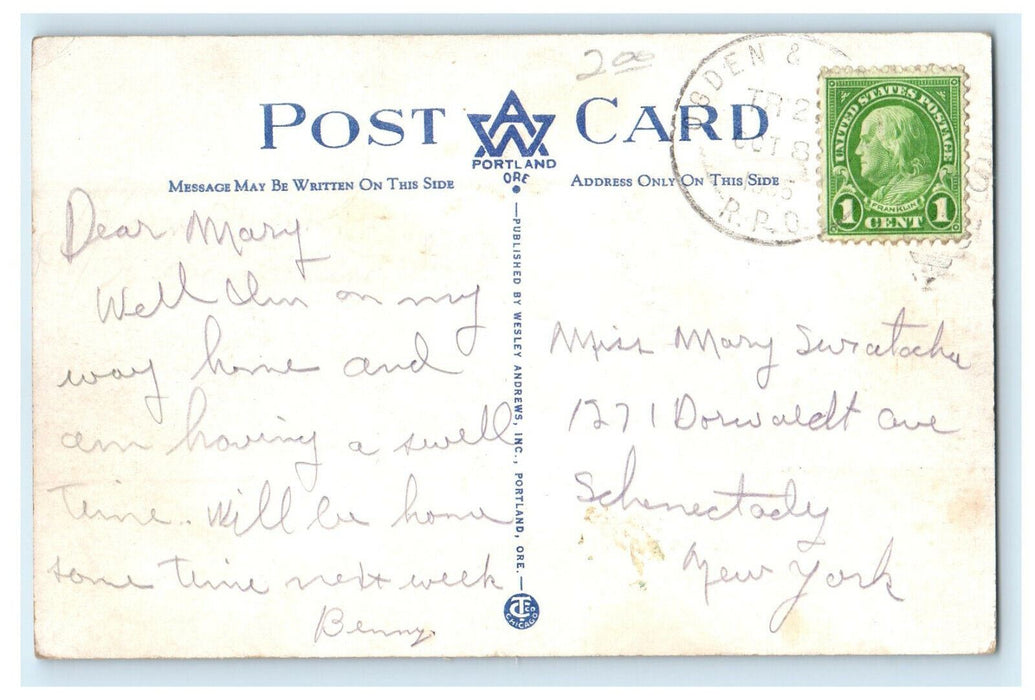 2.00
POST CARD
AWA
PORTLAND
ORE
MESSAGE MAY BE WRITTEN ON THIS SIDE
ADDRESS ONLY ON THIS SIDE
OGDEN &
TR 2
OCT 8
R.P.O.
UNITED STATES POSTAGE
FRANKLIN
1 CENT 1
Dear Mary
Well I'm on my
way home and
am having a swell
time. Will be home
some time next week
Benny.
PUBLISHED BY WESLEY ANDREWS, INC., PORTLAND, ORE.
CT Co
CHICAGO
Miss Mary
1271 Dorwaldt ave
Schenectady
New York